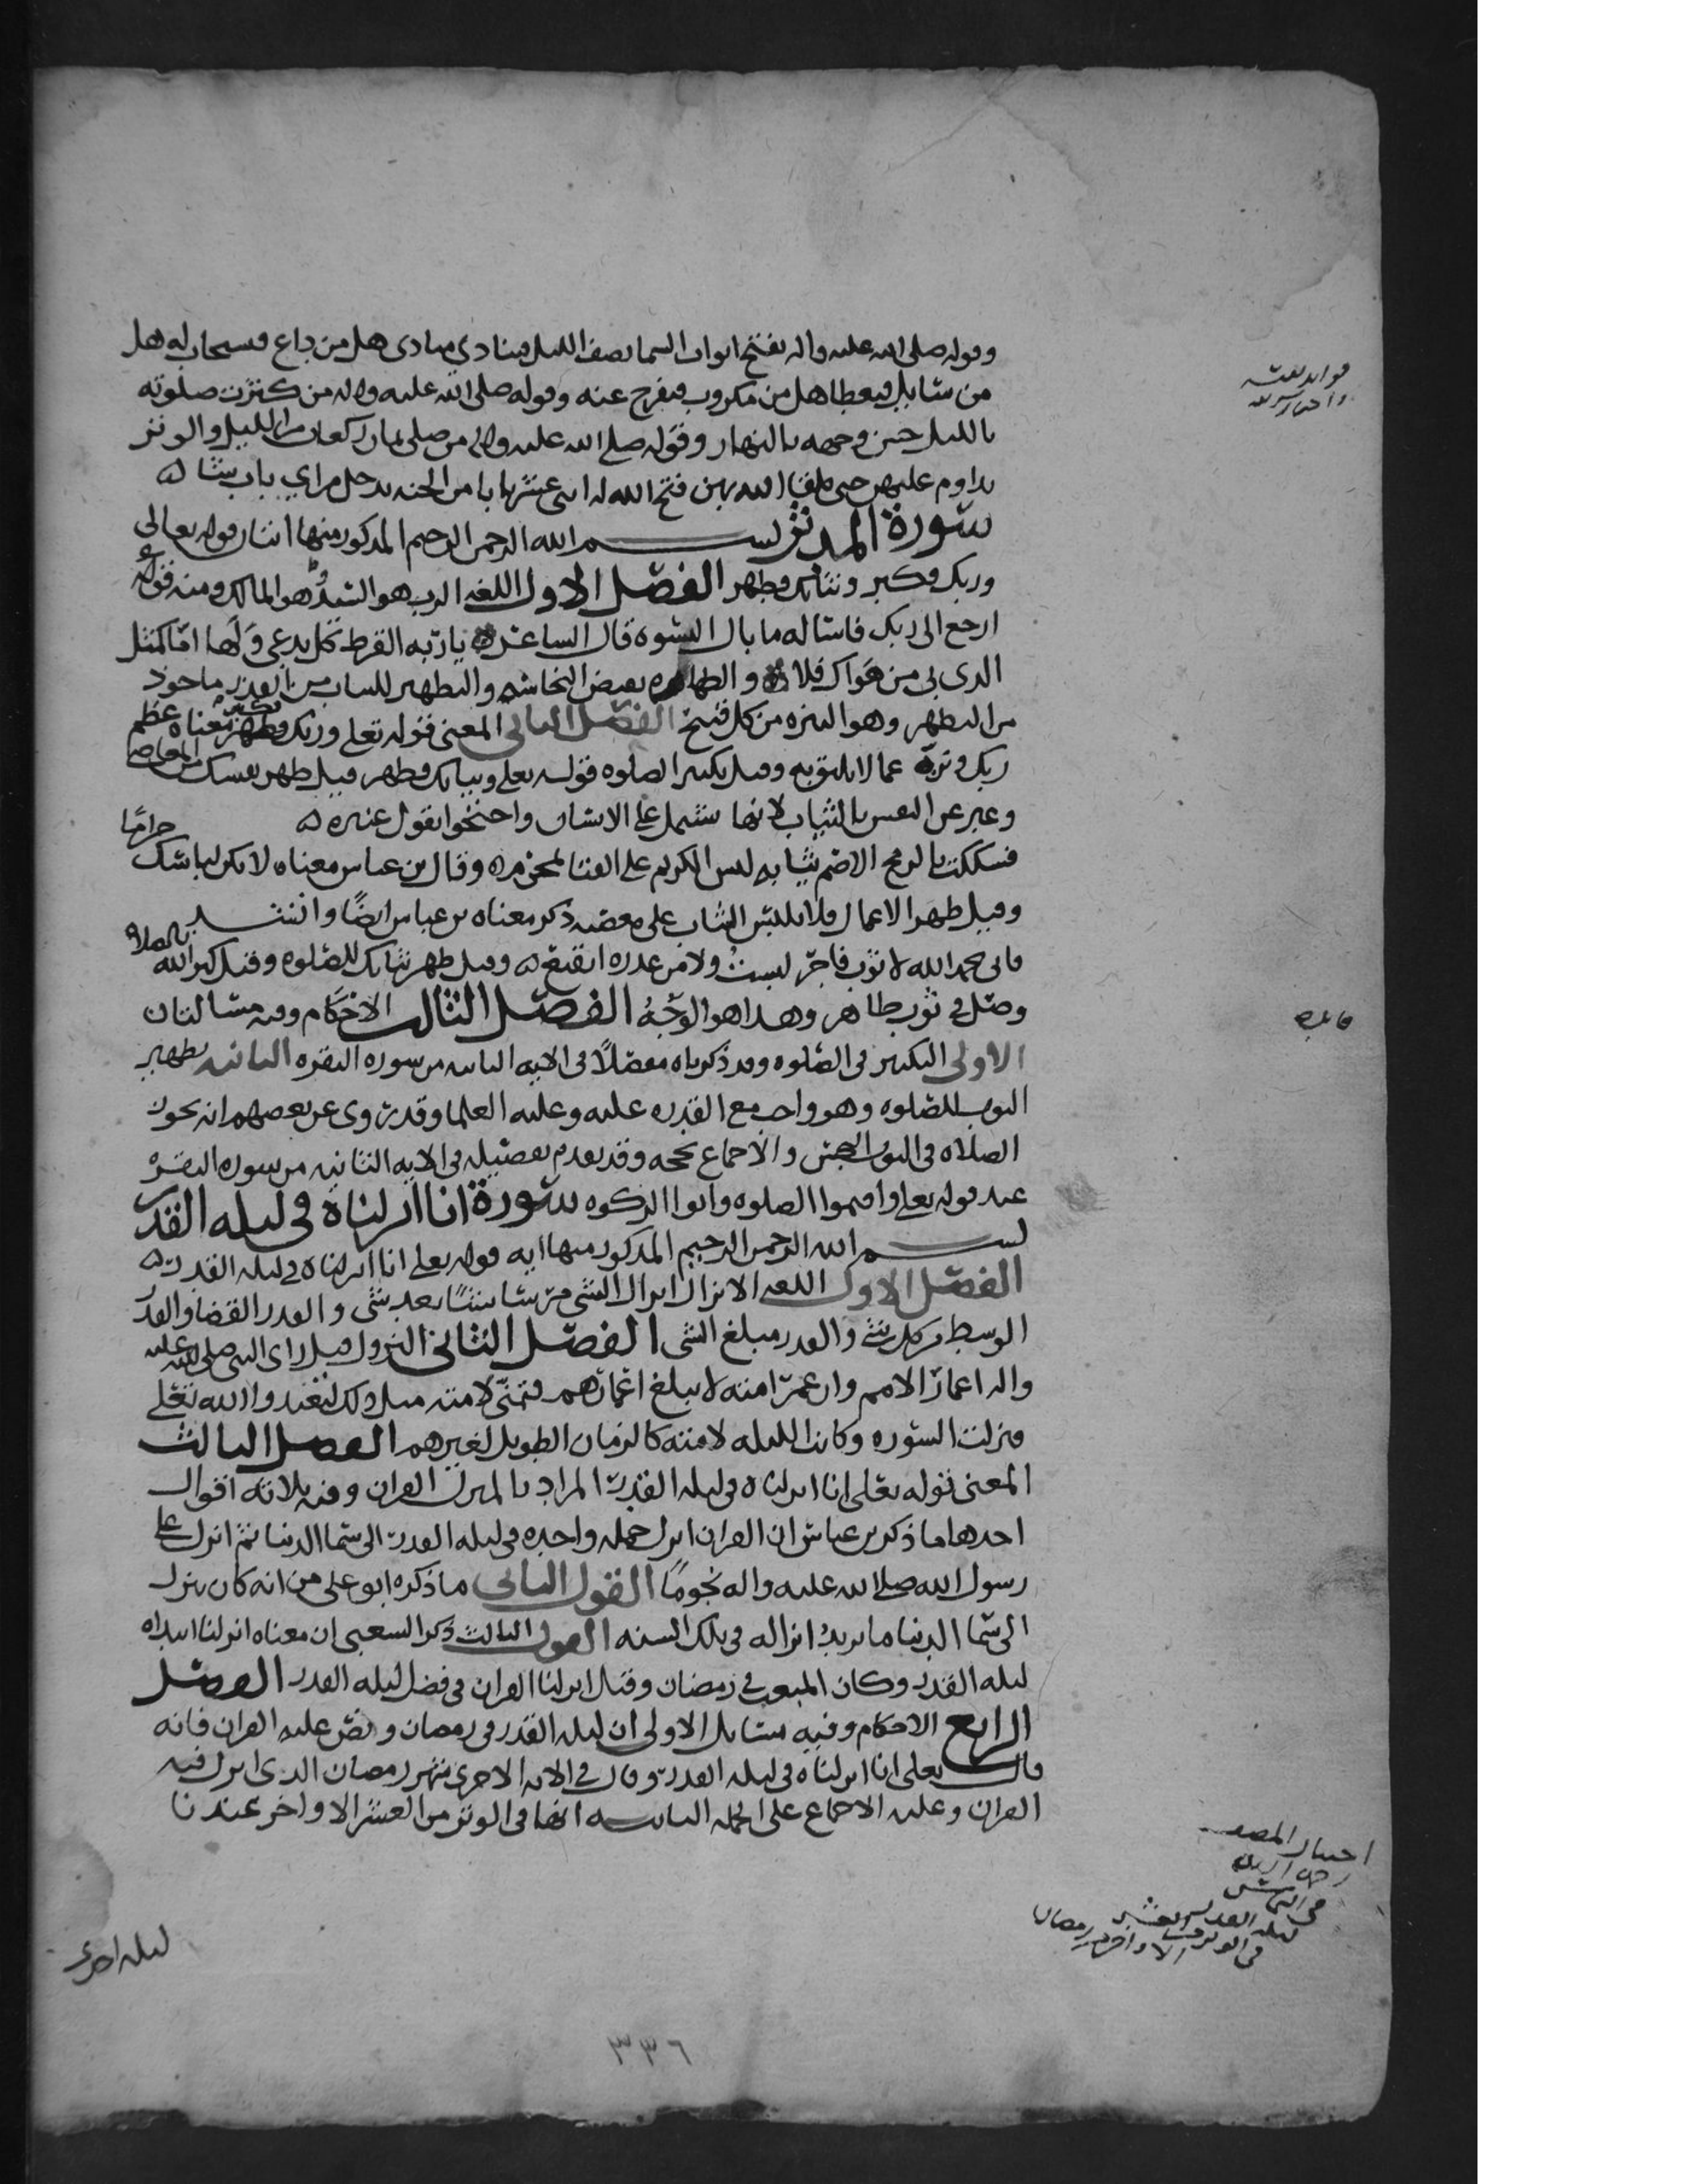 وقوله صلى الله عليه واله تفتح ابواب السما نصف الليل فينادي منادى هل من داع فيستجاب له هل
من سايل فيعطا هل من مكروب فيفرج عنه وقوله صلى الله عليه واله من كثرت صلوته
بالليل حسن وجهه بالنهار وقوله صلى الله عليه واله من صلى ثمان ركعات من الليل والوتر
يداوم عليهن حتى يلقا الله بهن فتح الله له اثنى عشر بابا من الجنه يدخل من اي باب شا
سورة المدثر بسم الله الرحمن الرحيم المذكور منها اثنتان قوله تعالى
وربك فكبر وثيابك فطهر الفصل الاول اللغه الرب هو السيد وهو المالك ومنه قوله
ارجع الى ربك فاساله ما بال النسوه قال الشاعر يا ربه القرط
الذى بى من هواك فلا والطهاره نقيض النجاسه والتطهير للثياب من القذر ماخوذ
من التطهر وهو التنزه من كل قبيح الفصل الثانى المعنى قوله تعلى وربك فكبر معناه عظم
ربك ونزهه عما لا يليق به وقيل تكبير الصلوه قوله تعلى وثيابك فطهر قيل طهر نفسك من المعاصى
وعبر عن النفس بالثياب لانها تشتمل على الانسان واحتجوا بقول عنتره
فشككت بالرمح الاصم ثيابه ليس الكريم على القنا بمحرم وقال بن عباس معناه لا يكن لباسك حراما
وقيل طهر الاعمال فلا تلبس الثياب على معصيه ذكر معناه بن عباس ايضا وانشد
فانى بحمد الله لا ثوب فاجر لبست ولا من غدره اتقنع وقيل طهر ثيابك للصلوه وقيل كبر الله بالصلاه
وصل فى ثوب طاهر وهذا هو الوجه الفصل الثالث الاحكام وفيه مسالتان
الاولى التكبير فى الصلوه وقد ذكرناه مفصلا فى الايه الثانيه من سوره البقره الثانيه تطهير
الثوب للصلوه وهو واجب مع القدره عليه وعليه العلما وقد روى عن بعضهم انه يجوز
الصلاه فى الثوب النجس والاجماع يحجه وقد تقدم تفصيله فى الايه الثانيه من سوره البقره
عند قوله تعلى واقيموا الصلوه واتوا الزكوه سورة انا انزلناه فى ليله القدر
بسم الله الرحمن الرحيم المذكور منها ايه قوله تعلى انا انزلناه فى ليله القدر
الفصل الاول اللغه الانزال انزال الشى شيا بعد شى والقدر القضا والقدر
الوسط من كل شى والقدر مبلغ الشى الفصل الثانى النزول قيل راى النبى صلى الله عليه
واله اعمار الامم وان عمر امته لا يبلغ اعمارهم فتمنى لامته مثل ذلك ليعبدوا الله تعلى
فنزلت السوره وكانت الليله لامته كالزمان الطويل لغيرهم الفصل الثالث
المعنى قوله تعلى انا انزلناه فى ليله القدر المراد بالمنزل القران وفيه ثلاثه اقوال
احدها ما ذكر بن عباس ان القران انزل جمله واحده فى ليله القدر الى سما الدنيا ثم انزل على
رسول الله صلى الله عليه واله نجوما القول الثانى ما ذكره ابو على من انه كان ينزل
الى سما الدنيا ما يريد انزاله فى تلك السنه القول الثالث ذكر الشعبى ان معناه انزلنا ابتداه
ليله القدر وكان المبعث فى رمضان وقيل انزلنا القران فى فضل ليله القدر الفصل
الرابع الاحكام وفيه مسايل الاولى ان ليله القدر فى رمضان ونص عليه القران فانه
قال تعلى انا انزلناه فى ليله القدر وقال فى الايه الاخرى شهر رمضان الذى انزل فيه
القران وعليه الاجماع على الجمله الثانيه انها فى الوتر من العشر الاواخر عندنا
فايده
اختيار المصنف
فى
ليله القدر
فى الوتر من العشر
الاواخر من رمضان
ليله احدى
٣٣٦